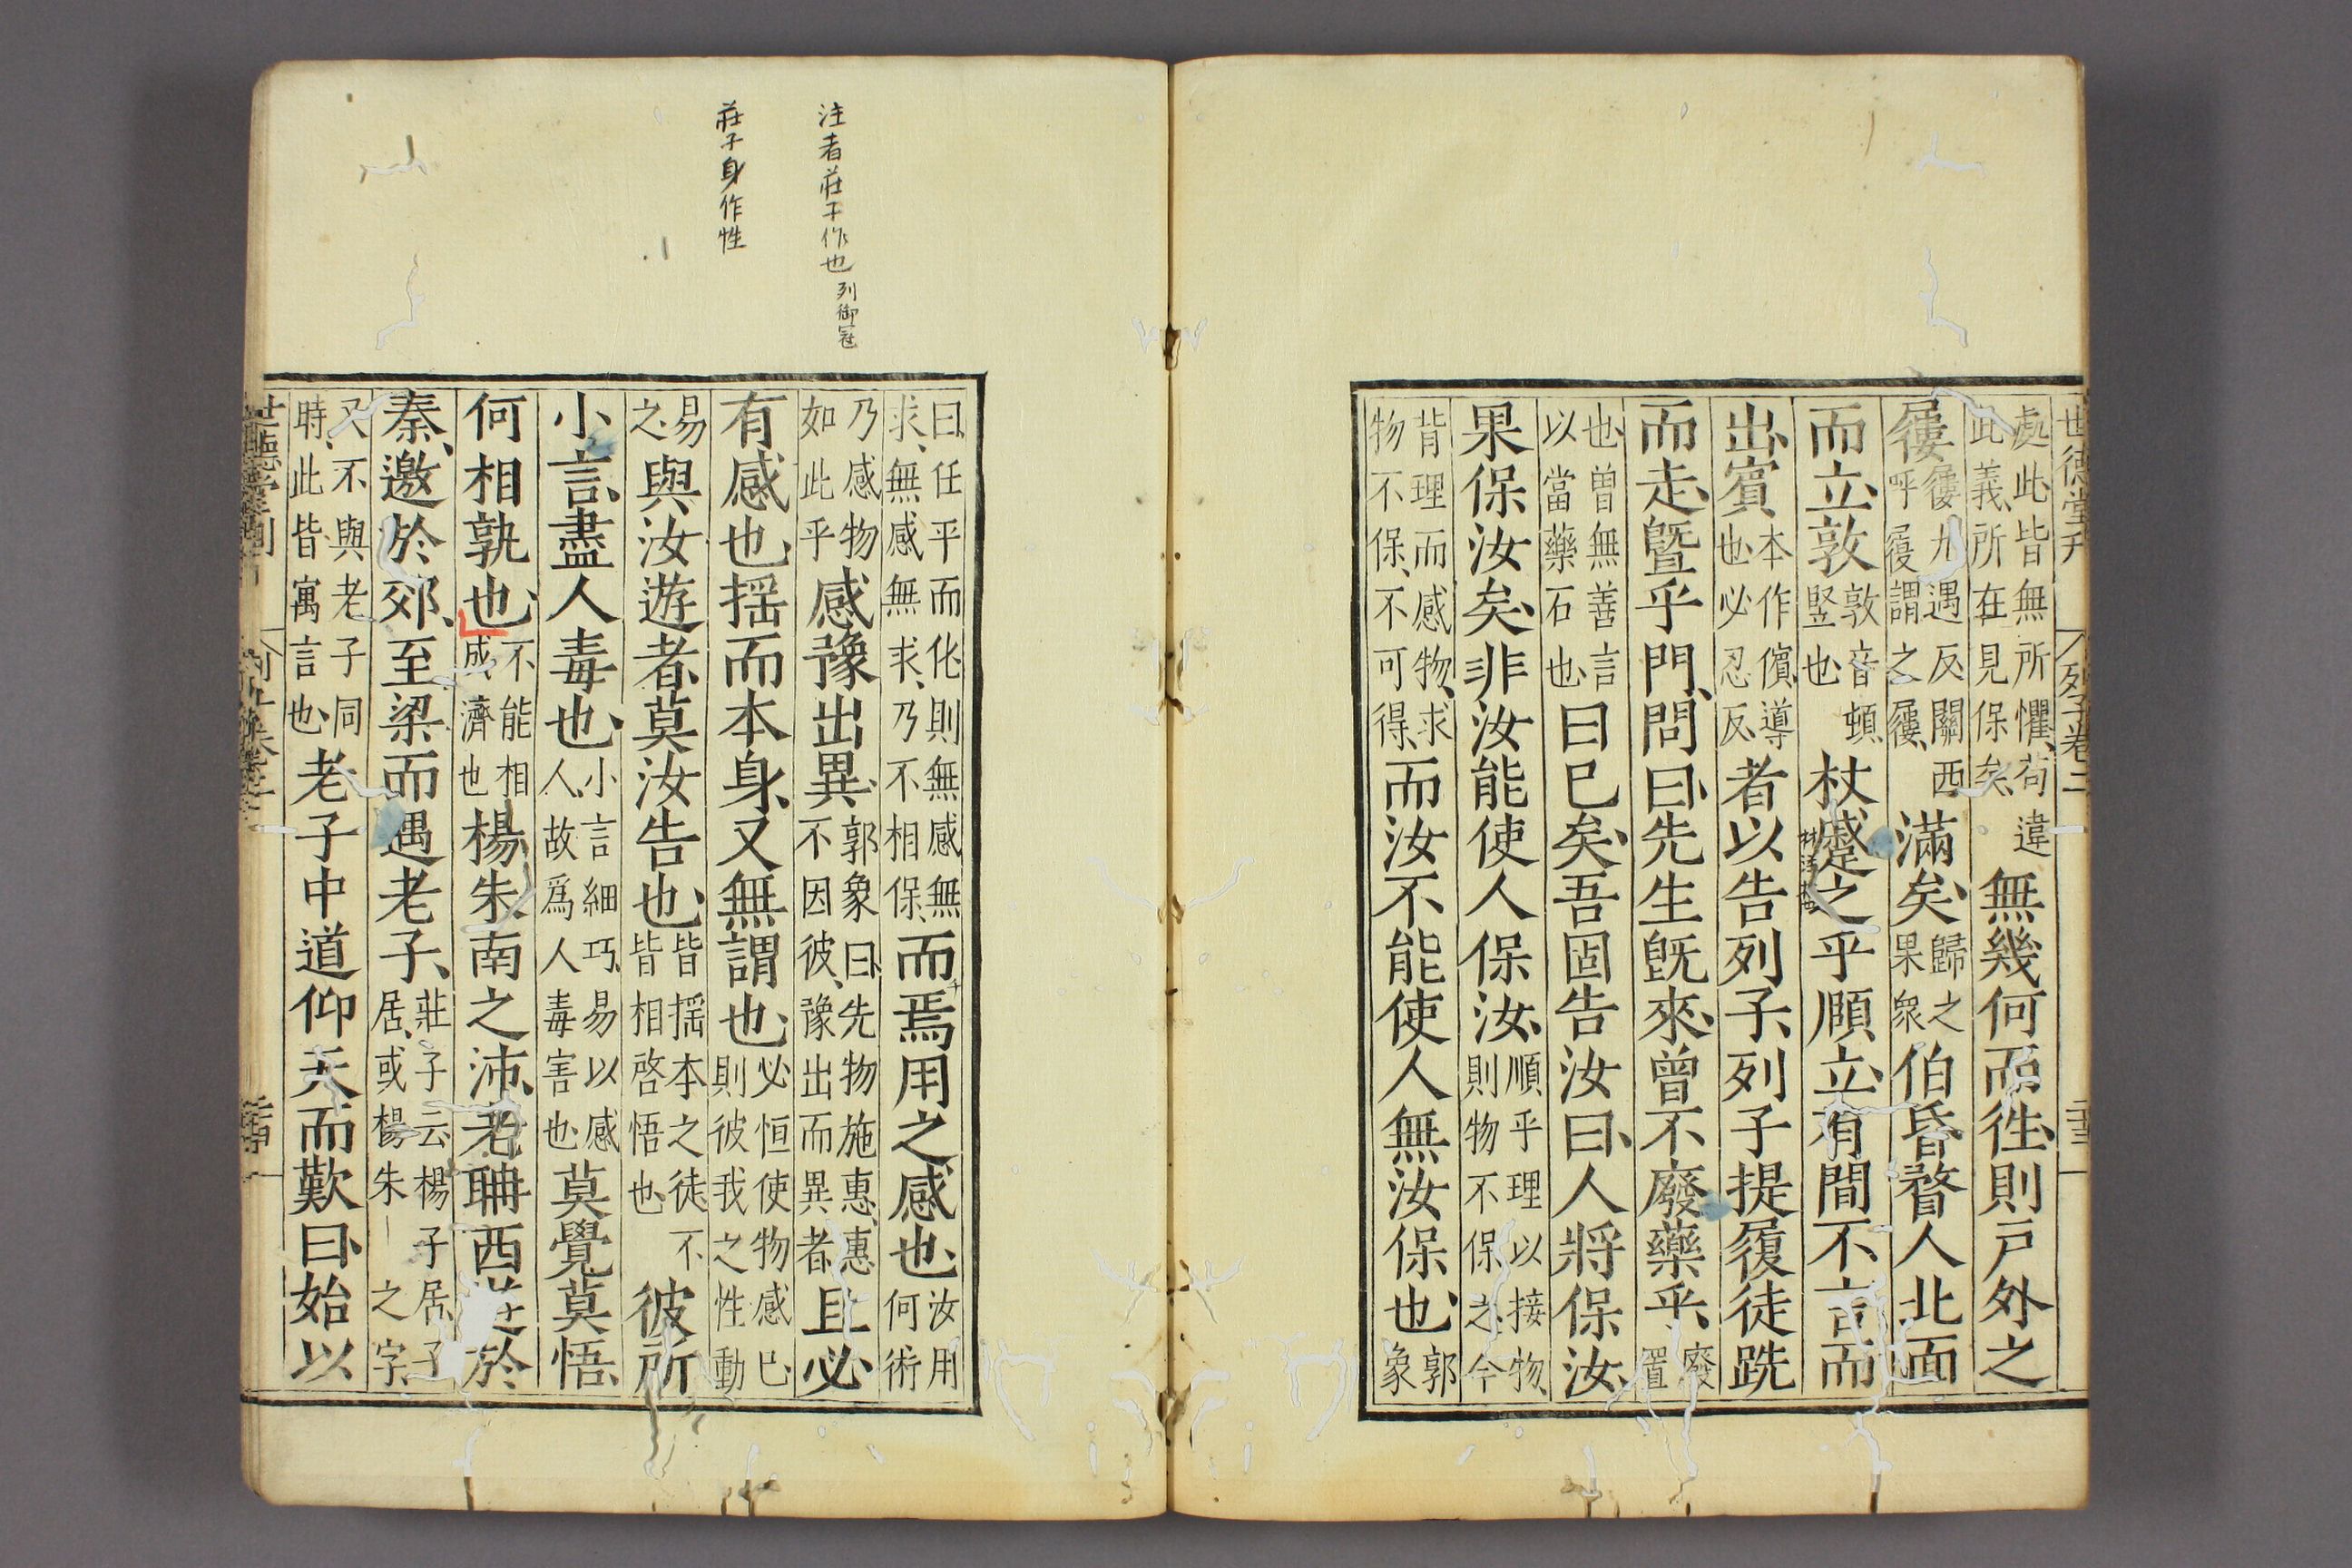 世德堂刋 列子卷二
處此皆無所懼苟違此義所在見保矣無幾何而徃則戸外之
屨屨九遇反關西呼履謂之屨滿矣歸之果衆伯昏瞀人北面
而立敦敦音頓豎也杖蹙之乎頤立有間不言而
出賓本作儐導也必忍反者以告列子列子提履徒跣
而走曁乎門問曰先生旣來曾不廢藥乎廢置
也曾無善言以當藥石也曰已矣吾固告汝曰人將保汝
果保汝矣非汝能使人保汝順乎理以接物則物不保之今
背理而感物求物不保不可得而汝不能使人無汝保也郭象
注者莊子作也列御寇
莊子身作性
曰任平而化則無感無求無感無求乃不相保而焉用之感也汝用何術
乃感物如此乎感豫出異郭象曰先物施惠惠不因彼豫出而異者且必
有感也揺而本身又無謂也必恒使物感已則彼我之性動
易之與汝遊者莫汝告也皆揺本之徒不皆相啓悟也彼所
小言盡人毒也小言細巧易以感人故爲人毒害也莫覺莫悟
何相孰也不能相成濟也楊朱南之沛老聃西遊於
秦邀於郊至梁而遇老子莊子云楊子居子居或楊朱之字
又不與老子同時此皆寓言也老子中道仰天而歎曰始以